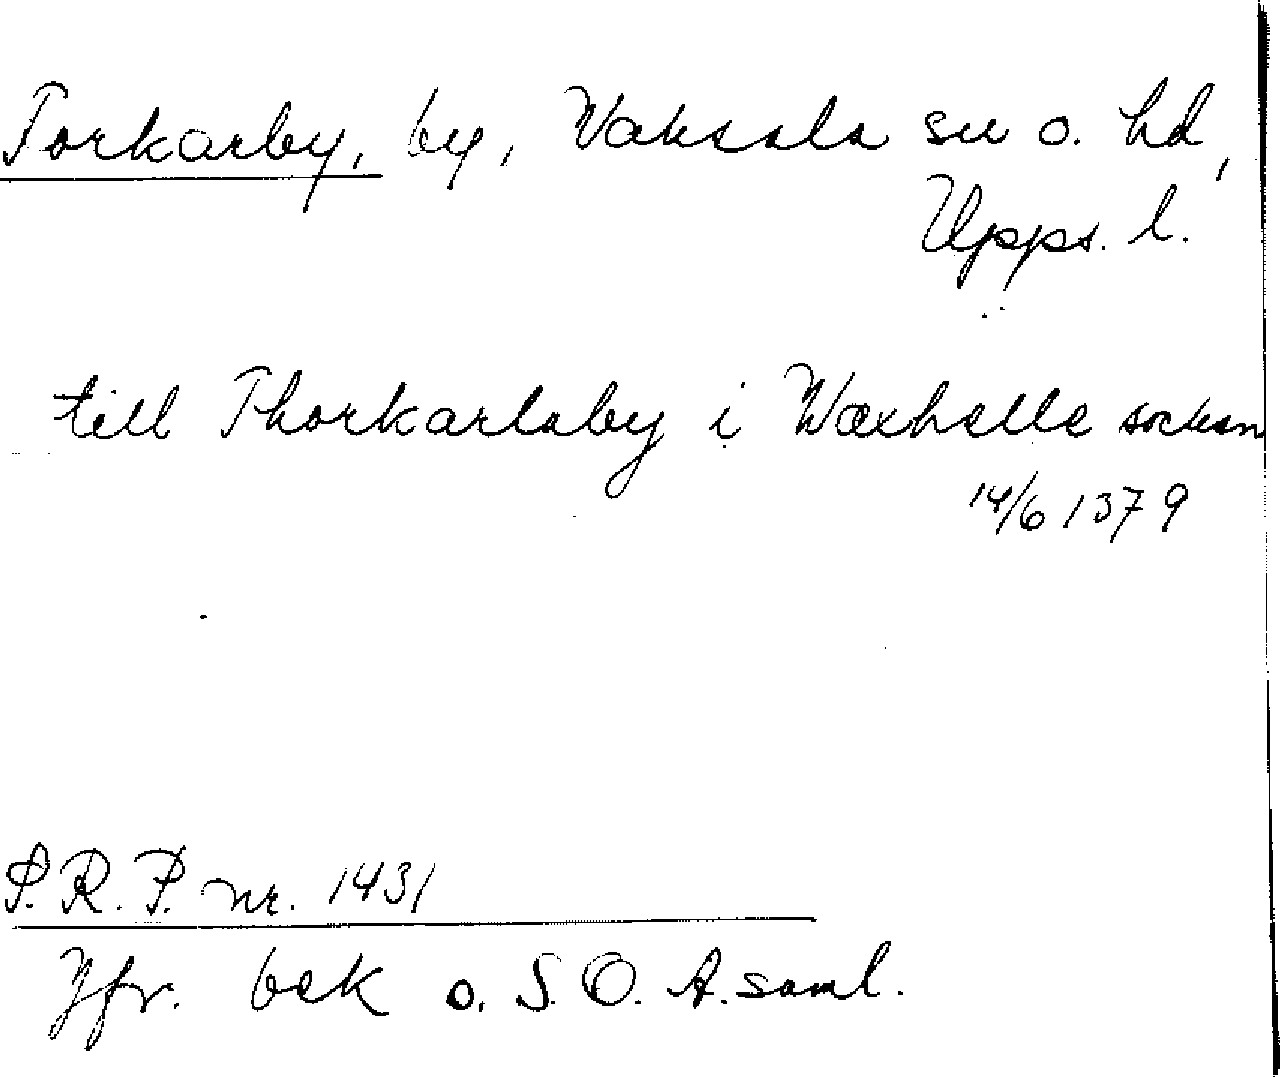 Torkarby, by, Vaksala sn o. hd,
Upps. l.
till Thorkarlaby i Wæxhalle socken
14/6 1379
P.R.P. nr. 1431
Jfr. bek o. S.O.A.saml.